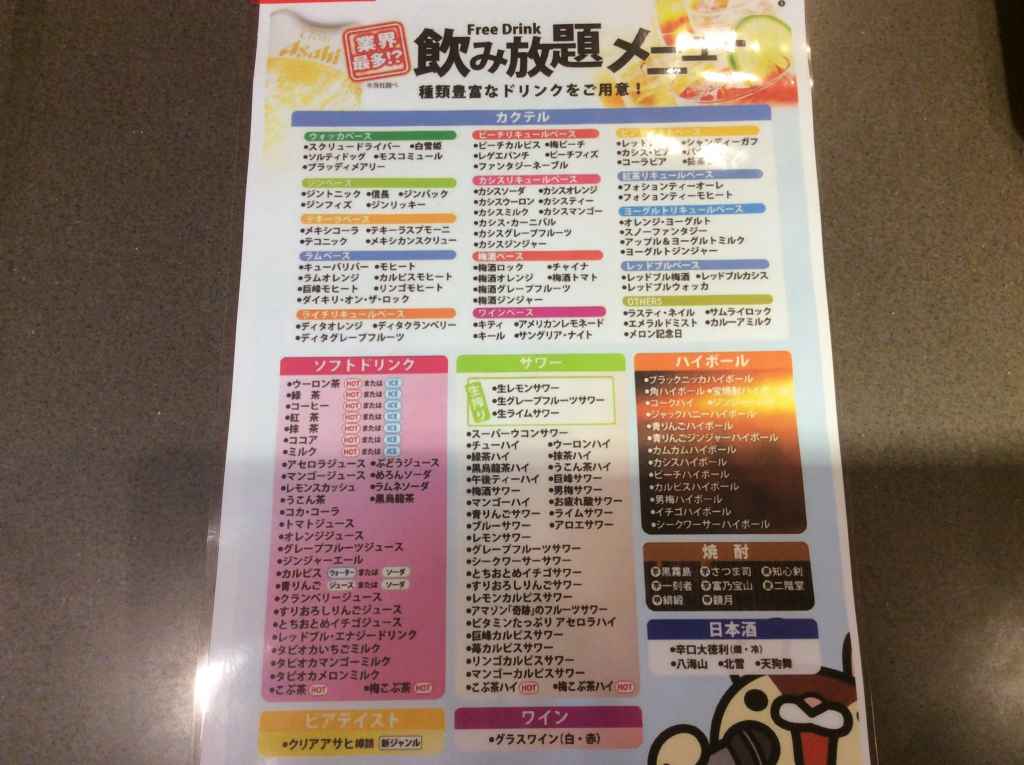 Asahi
業界
最多!?
※当社調べ
Free Drink
飲み放題 メニュー
種類豊富なドリンクをご用意！
カクテル
ウォッカベース
●スクリュードライバー ●白雪姫
●ソルティドッグ ●モスコミュール
●ブラッディメアリー
ジンベース
●ジントニック ●信長 ●ジンバック
●ジンフィズ ●ジンリッキー
テキーラベース
●メキシコーラ ●テキーラスプモーニ
●テコニック ●メキシカンスクリュー
ラムベース
●キューバリバー ●モヒート
●ラムオレンジ ●カルピスモヒート
●巨峰モヒート ●リンゴモヒート
●ダイキリ・オン・ザ・ロック
ライチリキュールベース
●ディタオレンジ ●ディタクランベリー
●ディタグレープフルーツ
ピーチリキュールベース
●ピーチカルピス ●梅ピーチ
●レゲエパンチ ●ピーチフィズ
●ファンタジーネーブル
カシスリキュールベース
●カシスソーダ ●カシスオレンジ
●カシスウーロン ●カシスティー
●カシスミルク ●カシスマンゴー
●カシス・カーニバル
●カシスグレープフルーツ
●カシスジンジャー
梅酒ベース
●梅酒ロック ●チャイナ
●梅酒オレンジ ●梅酒トマト
●梅酒グレープフルーツ
●梅酒ジンジャー
ワインベース
●キティ ●アメリカンレモネード
●キール ●サングリア・ナイト
ベース
●レッド ●シャンディーガフ
●カシス・ビア
●コーラビア
紅茶リキュールベース
●フォションティーオーレ
●フォションティーモヒート
ヨーグルトリキュールベース
●オレンジ・ヨーグルト
●スノーファンタジー
●アップル＆ヨーグルトミルク
●ヨーグルトジンジャー
レッドブルベース
●レッドブル梅酒 ●レッドブルカシス
●レッドブルウォッカ
OTHERS
●ラスティ・ネイル ●サムライロック
●エメラルドミスト ●カルーアミルク
●メロン記念日
ソフトドリンク
●ウーロン茶 HOT または ICE
●緑　茶 HOT または ICE
●コーヒー HOT または ICE
●紅　茶 HOT または ICE
●抹　茶 HOT または ICE
●ココア HOT または ICE
●ミルク HOT または ICE
●アセロラジュース ●ぶどうジュース
●マンゴージュース ●めろんソーダ
●レモンスカッシュ ●ラムネソーダ
●うこん茶 ●黒烏龍茶
●コカ・コーラ
●トマトジュース
●オレンジジュース
●グレープフルーツジュース
●ジンジャーエール
●カルピス ウォーター または ソーダ
●青りんご ジュース または ソーダ
●クランベリージュース
●すりおろしりんごジュース
●とちおとめイチゴジュース
●レッドブル・エナジードリンク
●タピオカいちごミルク
●タピオカマンゴーミルク
●タピオカメロンミルク
●こぶ茶 HOT ●梅こぶ茶 HOT
サワー
生搾り
●生レモンサワー
●生グレープフルーツサワー
●生ライムサワー
●スーパーウコンサワー
●チューハイ ●ウーロンハイ
●緑茶ハイ ●抹茶ハイ
●黒烏龍茶ハイ ●うこん茶ハイ
●午後ティーハイ ●巨峰サワー
●梅酒サワー ●男梅サワー
●マンゴーハイ ●お疲れ酸サワー
●青りんごサワー ●ライムサワー
●ブルーサワー ●アロエサワー
●レモンサワー
●グレープフルーツサワー
●シークワーサーサワー
●とちおとめイチゴサワー
●すりおろしりんごサワー
●レモンカルピスサワー
●アマゾン「奇跡」のフルーツサワー
●ビタミンたっぷり アセロラハイ
●巨峰カルピスサワー
●苺カルピスサワー
●リンゴカルピスサワー
●マンゴーカルピスサワー
●こぶ茶ハイ HOT ●梅こぶ茶ハイ HOT
ハイボール
●ブラックニッカハイボール
●角ハイボール ●宝焼酎ハイボール
●コークハイ
●ジャックハニーハイボール
●青りんごハイボール
●青りんごジンジャーハイボール
●カムカムハイボール
●カシスハイボール
●ピーチハイボール
●カルピスハイボール
●男梅ハイボール
●イチゴハイボール
●シークワーサーハイボール
焼酎
芋黒霧島 芋さつま司 麦知心剣
芋一刻者 芋富乃宝山 麦二階堂
甲緋緞 甲鏡月
日本酒
●辛口大徳利（燗・冷）
●八海山 ●北雪 ●天狗舞
ビアテイスト
●クリアアサヒ 樽詰 新ジャンル
ワイン
●グラスワイン（白・赤）